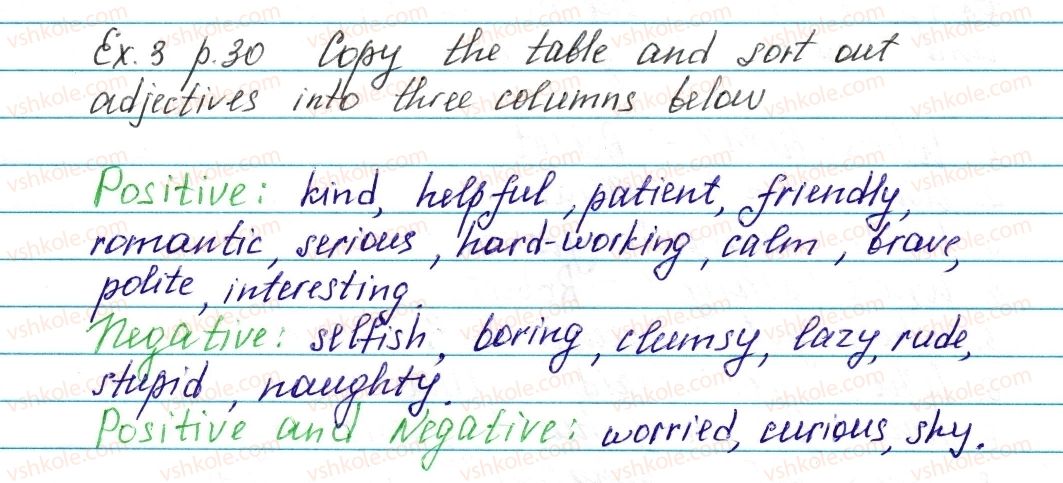 Ex. 3 p. 30 Copy the table and sort out
adjectives into three columns below
Positive: kind, helpful, patient, friendly,
romantic, serious, hard-working, calm, brave,
polite, interesting.
Negative: selfish, boring, clumsy, lazy, rude,
stupid, naughty.
Positive and Negative: worried, curious, shy.